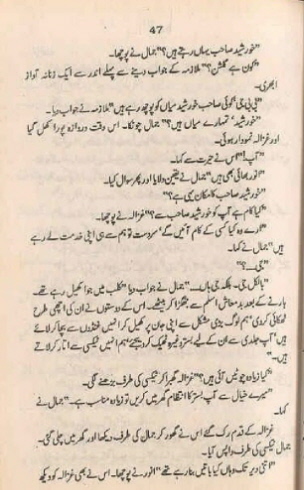 47
”خورشید صاحب یہاں رہتے ہیں؟“ جمال نے پوچھا۔
”کون ہے گلشن؟“ ملازمہ کے جواب دینے سے پہلے اندر سے ایک زنانہ آواز
ابھری۔
”بی بی جی‘ کوئی صاحب خورشید میاں کو پوچھ رہے ہیں“ ملازمہ نے جواب دیا۔
”خورشید‘ تمہارے میاں ہیں؟“ جمال چونکا۔ اس وقت دروازہ پورا کھل گیا
اور غزالہ نمودار ہوئی۔
”آپ!“ اس نے حیرت سے کہا۔
”انور بھائی بھی ہیں“ جمال نے یقین دلایا اور پھر سوال کیا۔
”خورشید صاحب کا مکان یہی ہے؟“
”کیا کام ہے آپ کو خورشید صاحب سے؟“ غزالہ نے پوچھا۔
”ارے وہ کیا کسی کے کام آئیں گے‘ سردست تو ہم سے ہی اپنی خدمت لے رہے
ہیں“ جمال نے کہا۔
”جی۔۔؟“
”بالکل جی۔۔ بلکہ جی ہاں۔۔“ جمال نے جواب دیا ”کلب میں جوا کھیل رہے تھے۔
ہارنے کے بعد بدمعاش اسلم سے جھگڑا کر بیٹھے۔ اس کے دوستوں نے ان کی اچھی طرح
ٹھکائی کر دی‘ ہم لوگ بڑی مشکل سے اپنی جان پر کھیل کر انہیں غنڈوں سے بچا کر لائے
ہیں‘ آپ جلدی سے ان کے لیے بستر وغیرہ ٹھیک کر دیجئے‘ ہم انہیں ٹیکسی سے اتار کر لاتے
ہیں۔“
”کیا زیادہ چوٹیں آئی ہیں؟“ غزالہ گھبرا کر ٹیکسی کی طرف بڑھنے لگی۔
”میرے خیال سے آپ بستر کا انتظام گھر میں کریں تو زیادہ مناسب ہے۔“ جمال نے
کہا۔
غزالہ کے قدم رک گئے اس نے گھور کر جمال کی طرف دیکھا اور گھر میں چلی گئی۔
جمال ٹیکسی کی طرف واپس آیا۔
”اتنی دیر تک وہاں کیا باتیں بنا رہے تھے“ انور نے پوچھا۔ اس نے بھی غزالہ کو دیکھ